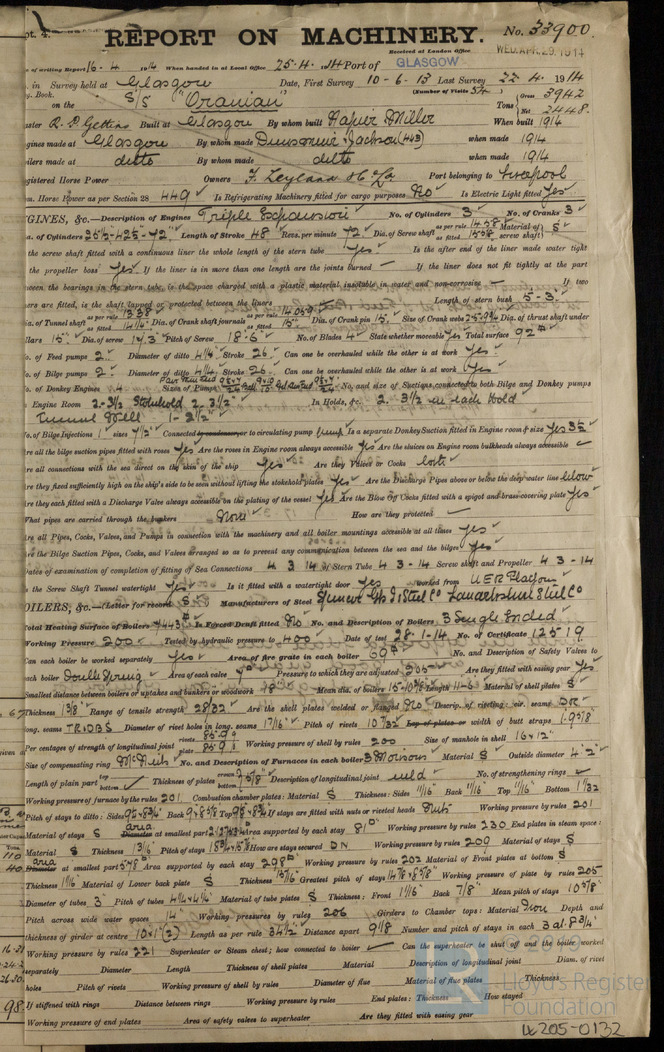 pt. 4.
REPORT ON MACHINERY. No. 33900.
Received at London Office WED. APR. 29. 1914
of writing Report 16. 4. 1914 When handed in at Local Office 25. 4. 1914 Port of GLASGOW
in Survey held at Glasgow Date, First Survey 10-6-13 Last Survey 22.4.1914
g. Book. (Number of Visits 54)
on the S/S "Oranian" Tons Gross 3942 Net 2448.
aster R. P. Gettins Built at Glasgow By whom built Napier Miller When built 1914
gines made at Glasgow By whom made Dunsmuir & Jackson (443) when made 1914
oilers made at ditto By whom made ditto when made 1914
egistered Horse Power Owners F. Leyland & Co Ld Port belonging to Liverpool
om. Horse Power as per Section 28 449 Is Refrigerating Machinery fitted for cargo purposes No Is Electric Light fitted Yes
GINES, &c.—Description of Engines Triple Expansion No. of Cylinders 3 No. of Cranks 3
a. of Cylinders Length of Stroke 48 Revs. per minute 72 Dia. of Screw shaft as per rule 14.58 as fitted Material of screw shaft S
he screw shaft fitted with a continuous liner the whole length of the stern tube Yes. Is the after end of the liner made water tight
the propeller boss Yes. If the liner is in more than one length are the joints burned — If the liner does not fit tightly at the part
ween the bearings in the stern tube, is the space charged with a plastic material insoluble in water and non-corrosive — If two
ers are fitted, is the shaft lapped or protected between the liners Length of stern bush 5-3.
ia. of Tunnel shaft as per rule 13.38 as fitted 14 1/4 Dia. of Crank shaft journals as per rule 14.05 as fitted 15 Dia. of Crank pin 15. Size of Crank webs Dia. of thrust shaft under
llars 15 Dia. of screw 17.3 Pitch of Screw 18-6 No. of Blades 4 State whether moveable Yes Total surface 92
o. of Feed pumps 2. Diameter of ditto 4 1/4 Stroke 26. Can one be overhauled while the other is at work Yes
o. of Bilge pumps 2. Diameter of ditto 4 1/4 Stroke 26. Can one be overhauled while the other is at work Yes
o. of Donkey Engines 4 Sizes of Pumps No. and size of Suctions connected to both Bilge and Donkey pumps
Engine Room 2-3 1/2 Stokehold 2 3 1/2 In Holds, &c. 2. 3 1/2 in each hold
Tunnel Well 1-2 1/2
No. of Bilge Injections 1 sizes 7 1/2 Connected to condenser, or to circulating pump pump Is a separate Donkey Suction fitted in Engine room & size Yes 3 1/2
re all the bilge suction pipes fitted with roses Yes Are the roses in Engine room always accessible Yes Are the sluices on Engine room bulkheads always accessible —
re all connections with the sea direct on the skin of the ship Yes Are they Valves or Cocks both
re they fixed sufficiently high on the ship's side to be seen without lifting the stokehold plates Yes Are the Discharge Pipes above or below the deep water line below
re they each fitted with a Discharge Valve always accessible on the plating of the vessel Yes Are the Blow Off Cocks fitted with a spigot and brass covering plate Yes
What pipes are carried through the bunkers None How are they protected —
re all Pipes, Cocks, Valves, and Pumps in connection with the machinery and all boiler mountings accessible at all times Yes
re the Bilge Suction Pipes, Cocks, and Valves arranged so as to prevent any communication between the sea and the bilges Yes
Dates of examination of completion of fitting of Sea Connections 4 3 14 of Stern Tube 4-3-14 Screw shaft and Propeller 4 3-14
s the Screw Shaft Tunnel watertight Yes Is it fitted with a watertight door Yes worked from UER Platform
OILERS, &c.—(Letter for record S) Manufacturers of Steel Spencer Lanarkshire Steel Co
otal Heating Surface of Boilers 7443 Is Forced Draft fitted No No. and Description of Boilers 3 Single Ended
Working Pressure 200 Tested by hydraulic pressure to 400 Date of test 28.1-14 No. of Certificate 12519
Can each boiler be worked separately Yes Area of fire grate in each boiler 69 No. and Description of Safety Valves to
each boiler Double Spring Area of each valve Pressure to which they are adjusted 205 Are they fitted with easing gear Yes
Smallest distance between boilers or uptakes and bunkers or woodwork 18" Mean dia. of boilers Length 11-6 Material of shell plates S
Thickness 1 3/8 Range of tensile strength 28/32 Are the shell plates welded or flanged No Descrip. of riveting: cir. seams DR
long. seams TR.DBS Diameter of rivet holes in long. seams 1 7/16 Pitch of rivets 10 7/32 Lap of plates or width of butt straps
Per centages of strength of longitudinal joint rivets 85.9 plate 85.9 Working pressure of shell by rules 200 Size of manhole in shell 16 x 12
Size of compensating ring No. and Description of Furnaces in each boiler 3 Morisons Material S Outside diameter 4'2"
Length of plain part top bottom Thickness of plates crown bottom 5/8 Description of longitudinal joint weld No. of strengthening rings —
Working pressure of furnace by the rules 201 Combustion chamber plates: Material S Thickness: Sides 11/16 Back 11/16 Top 11/16 Bottom 1 1/32
Pitch of stays to ditto: Sides Back Top If stays are fitted with nuts or riveted heads Nuts Working pressure by rules 201
Material of stays S Diameter area at smallest part Area supported by each stay 81 Working pressure by rules 230 End plates in steam space:
Material S Thickness 1 3/16 Pitch of stays How are stays secured DN Working pressure by rules 209 Material of stays S
Diameter area at smallest part 5.78 Area supported by each stay 298 Working pressure by rules 202 Material of Front plates at bottom S
Thickness 1 1/16 Material of Lower back plate S Thickness 15/16 Greatest pitch of stays Working pressure of plate by rules 205
Diameter of tubes 3 Pitch of tubes Material of tube plates S Thickness: Front 1 1/16 Back 7/8 Mean pitch of stays 10 5/8
Pitch across wide water spaces 14 Working pressures by rules 206 Girders to Chamber tops: Material Iron Depth and
thickness of girder at centre 10 x 1 (2) Length as per rule 34 1/2 Distance apart 9 1/8 Number and pitch of stays in each 3 at 8 3/4
Working pressure by rules 221 Superheater or Steam chest; how connected to boiler — Can the superheater be shut off and the boiler worked
separately Diameter Length Thickness of shell plates Material Description of longitudinal joint Diam. of rivet
holes Pitch of rivets Working pressure of shell by rules Diameter of flue Material of flue plates Thickness
If stiffened with rings Distance between rings Working pressure by rules End plates: Thickness How stayed
Working pressure of end plates Area of safety valves to superheater Are they fitted with easing gear
© 2020
LR
Lloyd's Register
Foundation
LR205-0132